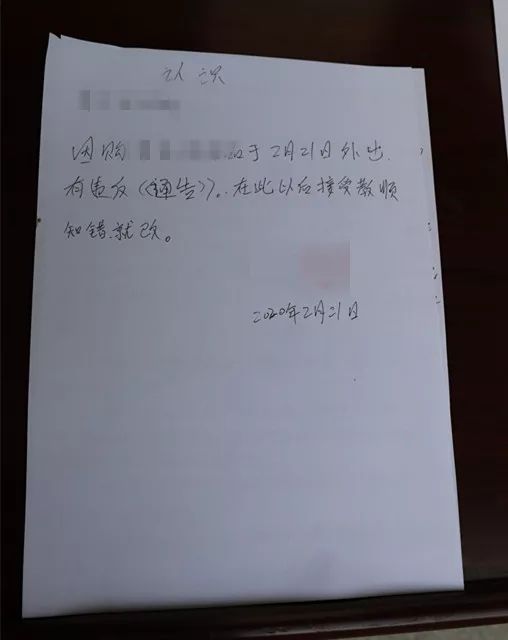 认识
因购品于2月21日外出,
有违反《通告》。在此以后接受教顺
知错就改。
2020年2月21日